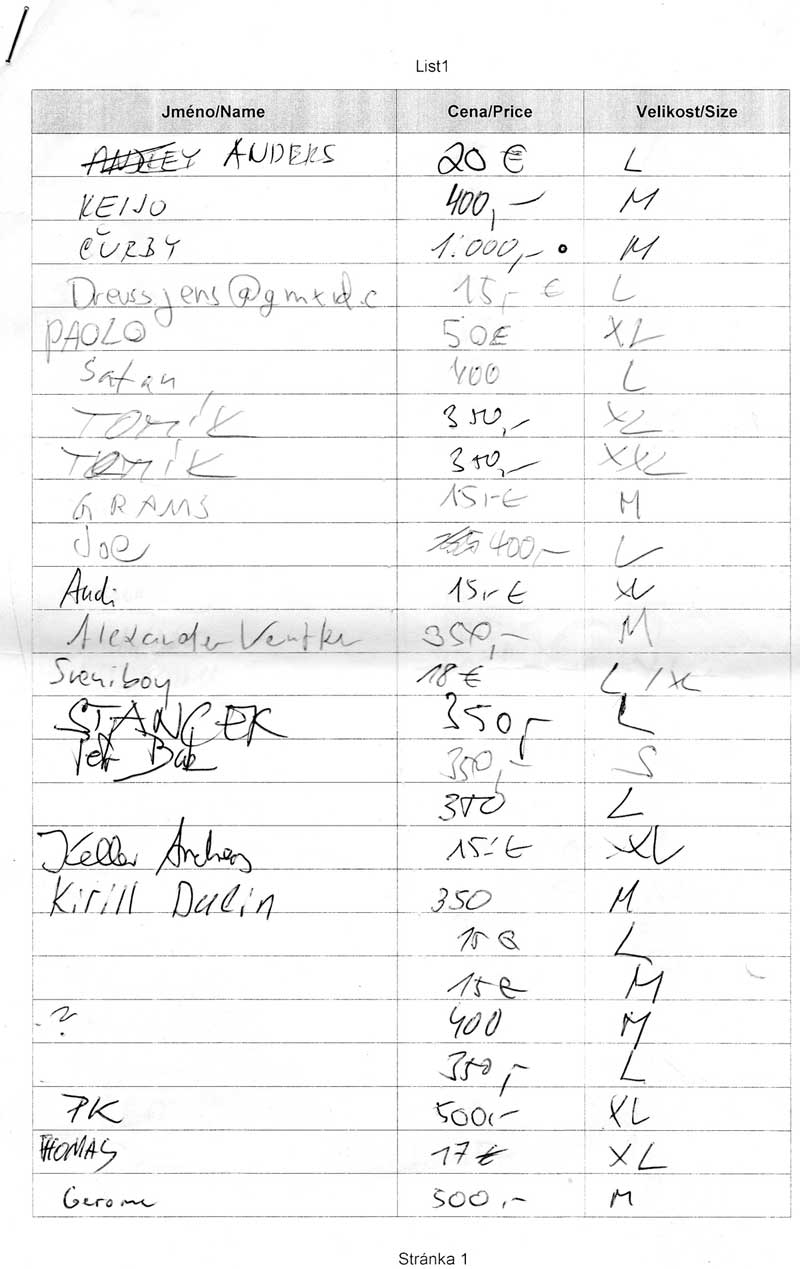 List1
Jméno/Name Cena/Price Velikost/Size
ANDERS 20 € L
KEIJO 400,- M
ČURBY 1.000,- M
15,- € L
PAOLO 50€ XL
Satan 400 L
TOMÍK 350,- XL
TOMÍK 350,- XXL
GRAMS 15,-€ M
Joe 400,- L
Audi 15,-€
Alexander 350,- M
Sveniboy 18 €
STANCEK 350,- L
Petr 350,- S
350 L
Keller Andreas 15,-€ XL
Kirill 350 M
15 € L
15 € M
? 400 M
350,- L
PK 500,- XL
THOMAS 17 € XL
Gerome 500,- M
Stránka 1